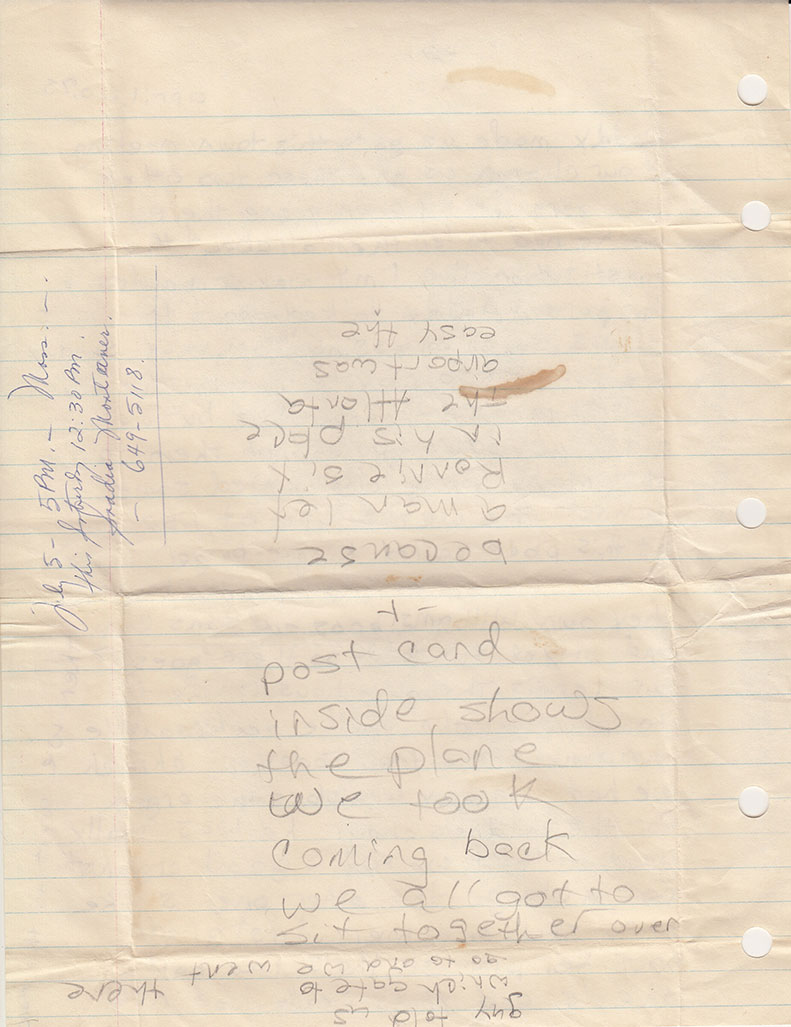 post card
inside shows
the plane
we took
coming back
we all got to
sit together over
because
a man let
Ronnie sit
in his place
the Atlanta
airport was
easy the
guy told us
which gate to
go to and we went there
July 5 - 5 PM. - Mon. -.
this Saturday 12:30 PM.
Montaner.
- 649-5118.